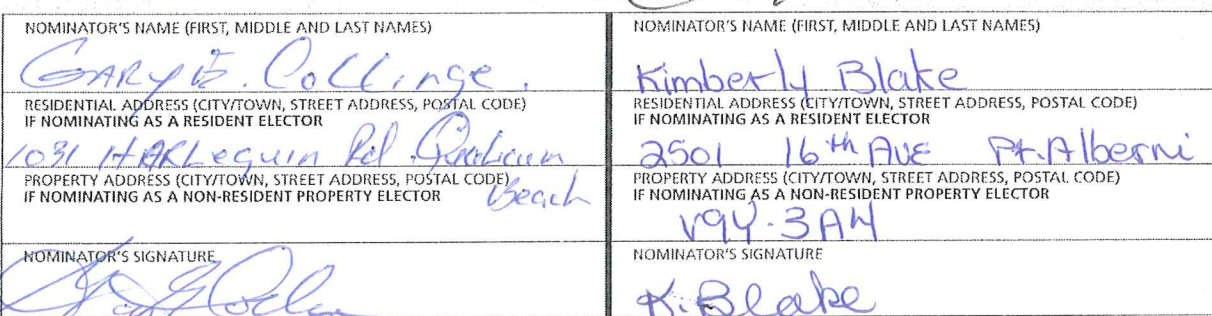 NOMINATOR'S NAME (FIRST, MIDDLE AND LAST NAMES)
GARY E. Collinge.
RESIDENTIAL ADDRESS (CITY/TOWN, STREET ADDRESS, POSTAL CODE)
IF NOMINATING AS A RESIDENT ELECTOR
1031 HARLequin Rd. Qualicum
PROPERTY ADDRESS (CITY/TOWN, STREET ADDRESS, POSTAL CODE)
IF NOMINATING AS A NON-RESIDENT PROPERTY ELECTOR Beach
NOMINATOR'S SIGNATURE
NOMINATOR'S NAME (FIRST, MIDDLE AND LAST NAMES)
Kimberly Blake
RESIDENTIAL ADDRESS (CITY/TOWN, STREET ADDRESS, POSTAL CODE)
IF NOMINATING AS A RESIDENT ELECTOR
2501 16th AVE Pt. Alberni
PROPERTY ADDRESS (CITY/TOWN, STREET ADDRESS, POSTAL CODE)
IF NOMINATING AS A NON-RESIDENT PROPERTY ELECTOR
V9Y-3AH
NOMINATOR'S SIGNATURE
K. Blake